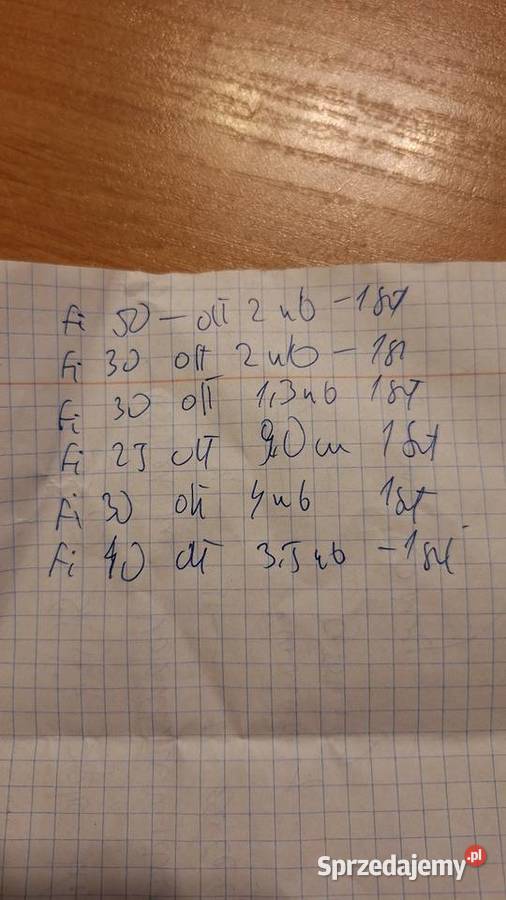 fi 50 - dł 2 mb - 1szt
fi 30 dł 2 mb - 1szt
fi 30 dł 1,3 mb 1szt
fi 25 dł 90 cm 1szt
fi 30 dł 4 mb 1szt
fi 40 dł 3,5 mb - 1szt
Sprzedajemy.pl